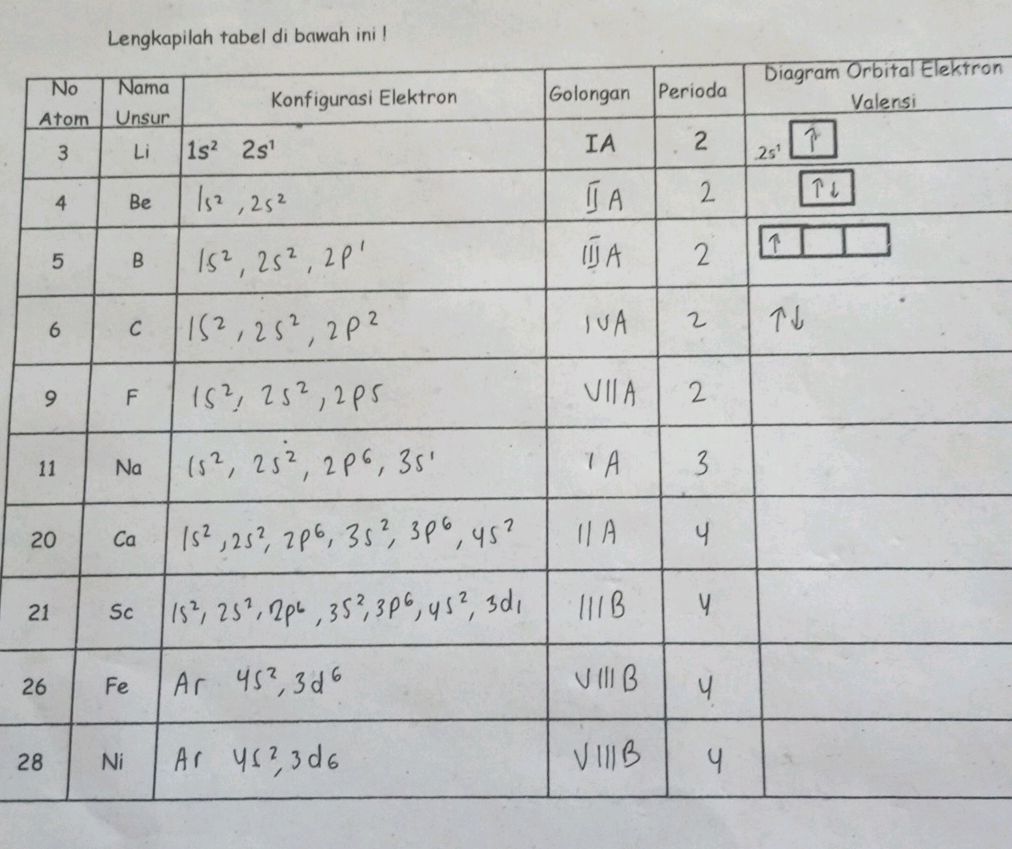 Lengkapilah tabel di bawah ini !
No Atom Nama Unsur Konfigurasi Elektron Golongan Perioda Diagram Orbital Elektron Valensi
3 Li 1s² 2s¹ IA 2 2s¹ ↑
4 Be 1s², 2s² II A 2 ↑↓
5 B 1s², 2s², 2p¹ III A 2 ↑
6 C 1s², 2s², 2p² IVA 2 ↑↓
9 F 1s², 2s², 2p5 VIIA 2
11 Na 1s², 2s², 2p⁶, 3s¹ IA 3
20 Ca 1s², 2s², 2p⁶, 3s², 3p⁶, 4s² II A 4
21 Sc 1s², 2s², 2p⁶, 3s², 3p⁶, 4s², 3d1 IIIB 4
26 Fe Ar 4s², 3d⁶ VIIIB 4
28 Ni Ar 4s², 3d6 VIIIB 4